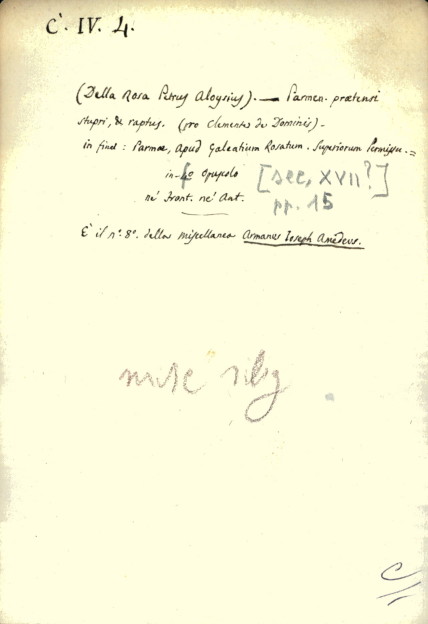 C. IV. 4.
(Della Rosa Petrus Aloysius). — Parmen. prætensi
stupri, & raptus. (pro Clemente de Dominis) -
in fine: Parmæ, apud Galeatium Rosatum. Superiorum Permissu. =
in-4° Opuscolo [sec, XVII?]
ne' Front. ne' Ant. pp. 15
E' il n°. 8°. della miscellanea Armanus Ioseph Amedeus.
C